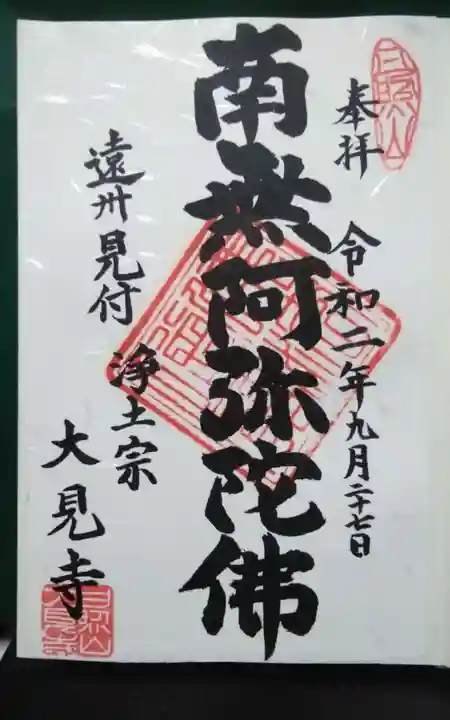 奉拝
令和二年九月二十七日
南無阿弥陀佛
遠州見付
浄土宗
大見寺